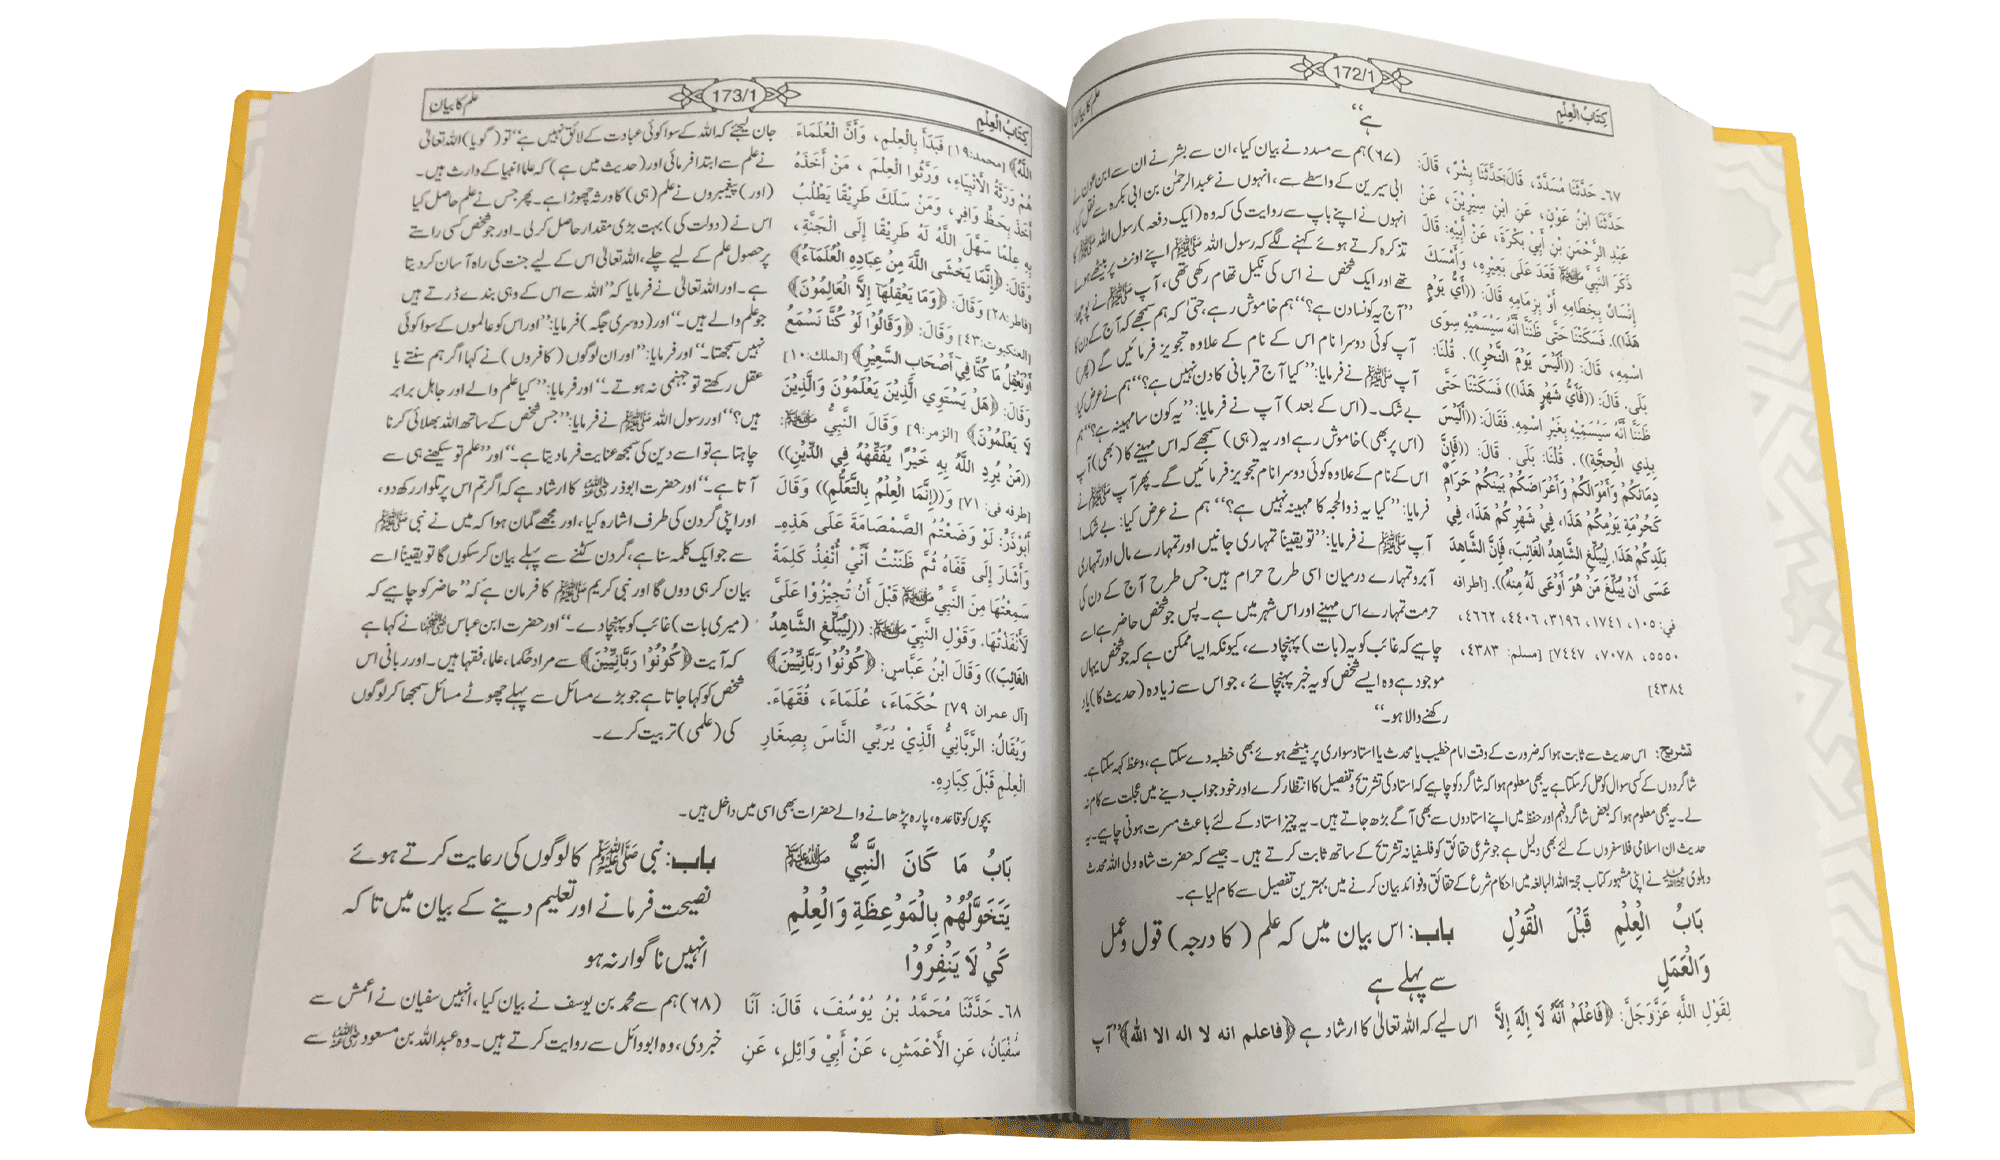 كِتَابُ الْعِلْمِ
172/1
علم کا بیان
ہے“
٦٧۔ حَدَّثَنَا مُسَدَّدٌ، قَالَ: حَدَّثَنَا بِشْرٌ، قَالَ:
حَدَّثَنَا ابْنُ عَوْنٍ، عَنِ ابْنِ سِيْرِيْنَ، عَنْ
عَبْدِ الرَّحْمَنِ بْنِ أَبِي بَكْرَةَ، عَنْ أَبِيْهِ: قَالَ
ذَكَرَ النَّبِيَّ ﷺ قَعَدَ عَلَى بَعِيْرِهِ، وَأَمْسَكَ
إِنْسَانٌ بِخِطَامِهِ أَوْ بِزِمَامِهِ قَالَ: ((أَيُّ يَوْمٍ
هَذَا)). فَسَكَتْنَا حَتَّى ظَنَنَّا أَنَّهُ سَيُسَمِّيْهِ سِوَى
اسْمِهِ، قَالَ: ((أَلَيْسَ يَوْمَ النَّحْرِ)). قُلْنَا:
بَلَى. قَالَ: ((فَأَيُّ شَهْرٍ هَذَا)) فَسَكَتْنَا حَتَّى
ظَنَنَّا أَنَّهُ سَيُسَمِّيْهِ بِغَيْرِ اسْمِهِ. فَقَالَ: ((أَلَيْسَ
بِذِي الْحِجَّةِ)). قُلْنَا: بَلَى. قَالَ: ((فَإِنَّ
دِمَائَكُمْ وَأَمْوَالَكُمْ وَأَعْرَاضَكُمْ بَيْنَكُمْ حَرَامٌ
كَحُرْمَةِ يَوْمِكُمْ هَذَا، فِيْ شَهْرِكُمْ هَذَا، فِيْ
بَلَدِكُمْ هَذَا. لِيُبَلِّغِ الشَّاهِدُ الْغَائِبَ، فَإِنَّ الشَّاهِدَ
عَسَى أَنْ يُبَلِّغَ مَنْ هُوَ أَوْعَى لَهُ مِنْهُ)). [أطرافه
في: ١٠٥، ١٧٤١، ٣١٩٦، ٤٤٠٦، ٤٦٦٢،
٥٥٥٠، ٧٠٧٨، ٧٤٤٧] [مسلم: ٤٣٨٣،
٤٣٨٤]
(٦٧) ہم سے مسدد نے بیان کیا، ان سے بشر نے ان سے ابن عون نے
ابی سیرین کے واسطے سے، انہوں نے عبدالرحمٰن بن ابی بکرہ سے نقل کیا،
انہوں نے اپنے باپ سے روایت کی کہ وہ (ایک دفعہ) رسول اللہ ﷺ کا
تذکرہ کرتے ہوئے کہنے لگے کہ رسول اللہ ﷺ اپنے اونٹ پر بیٹھے ہوئے
تھے اور ایک شخص نے اس کی نکیل تھام رکھی تھی، آپ ﷺ نے پوچھا
”آج یہ کونسا دن ہے؟“ ہم خاموش رہے، حتیٰ کہ ہم سمجھے کہ آج کے دن کا
آپ کوئی دوسرا نام اس کے نام کے علاوہ تجویز فرمائیں گے (پھر)
آپ ﷺ نے فرمایا: ”کیا آج قربانی کا دن نہیں ہے؟“ ہم نے عرض کیا:
بے شک۔ (اس کے بعد) آپ نے فرمایا: ”یہ کون سا مہینہ ہے؟“ ہم
(اس پر بھی) خاموش رہے اور یہ (ہی) سمجھے کہ اس مہینے کا (بھی) آپ
اس کے نام کے علاوہ کوئی دوسرا نام تجویز فرمائیں گے۔ پھر آپ ﷺ نے
فرمایا: ”کیا یہ ذوالحجہ کا مہینہ نہیں ہے؟“ ہم نے عرض کیا: بے شک!
آپ ﷺ نے فرمایا: ”تو یقیناً تمہاری جانیں اور تمہارے مال اور تمہاری
آبرو تمہارے درمیان اسی طرح حرام ہیں جس طرح آج کے دن کی
حرمت تمہارے اس مہینے اور اس شہر میں ہے۔ پس جو شخص حاضر ہے اسے
چاہیے کہ غائب کو یہ (بات) پہنچا دے، کیونکہ ایسا ممکن ہے کہ جو شخص یہاں
موجود ہے وہ ایسے شخص کو یہ خبر پہنچائے، جو اس سے زیادہ (حدیث کا) یاد
رکھنے والا ہو۔“
تشریح: اس حدیث سے ثابت ہوا کہ ضرورت کے وقت امام خطیب یا محدث یا استاد سواری پر بیٹھے ہوئے بھی خطبہ دے سکتا ہے، وعظ کہہ سکتا ہے۔
شاگردوں کے کسی سوال کو حل کر سکتا ہے یہ بھی معلوم ہوا کہ شاگرد کو چاہیے کہ استاد کی تشریح و تفصیل کا انتظار کرے اور خود جواب دینے میں عجلت سے کام نہ
لے۔ یہ بھی معلوم ہوا کہ بعض شاگرد فہم اور حفظ میں اپنے استادوں سے بھی آگے بڑھ جاتے ہیں۔ یہ چیز استاد کے لئے باعث مسرت ہونی چاہیے۔ یہ
حدیث ان اسلامی فلاسفروں کے لئے بھی دلیل ہے جو شرعی حقائق کو فلسفیانہ تشریح کے ساتھ ثابت کرتے ہیں۔ جیسے کہ حضرت شاہ ولی اللہ محدث
دہلوی نے اپنی مشہور کتاب حجۃ اللہ البالغہ میں احکام شرع کے حقائق و فوائد بیان کرنے میں بہترین تفصیل سے کام لیا ہے۔
بَابُ الْعِلْمِ قَبْلَ الْقَوْلِ
وَالْعَمَلِ
باب: اس بیان میں کہ علم (کا درجہ) قول و عمل
سے پہلے ہے
لِقَوْلِ اللَّهِ عَزَّوَجَلَّ: ﴿فَاعْلَمْ أَنَّهُ لَا إِلَهَ إِلَّا
اس لیے کہ اللہ تعالیٰ کا ارشاد ہے ﴿فاعلم انه لا اله الا الله﴾ ”آپ
كِتَابُ الْعِلْمِ
173/1
علم کا بیان
اللَّهُ﴾ [محمد:١٩] فَبَدَأَ بِالْعِلْمِ، وَأَنَّ الْعُلَمَاءَ
هُمْ وَرَثَةُ الْأَنْبِيَاءِ، وَرَّثُوا الْعِلْمَ، مَنْ أَخَذَهُ
أَخَذَ بِحَظٍّ وَافِرٍ، وَمَنْ سَلَكَ طَرِيْقًا يَطْلُبُ
بِهِ عِلْمًا سَهَّلَ اللَّهُ لَهُ طَرِيْقًا إِلَى الْجَنَّةِ،
وَقَالَ: ﴿إِنَّمَا يَخْشَى اللَّهَ مِنْ عِبَادِهِ الْعُلَمَاءُ﴾
[فاطر:٢٨] وَقَالَ: ﴿وَمَا يَعْقِلُهَا إِلَّا الْعَالِمُوْنَ﴾
[العنكبوت:٤٣] وَقَالَ: ﴿وَقَالُوْا لَوْ كُنَّا نَسْمَعُ
أَوْ نَعْقِلُ مَا كُنَّا فِيْ أَصْحَابِ السَّعِيْرِ﴾ [الملك:١٠]
وَقَالَ: ﴿هَلْ يَسْتَوِي الَّذِيْنَ يَعْلَمُوْنَ وَالَّذِيْنَ
لَا يَعْلَمُوْنَ﴾ [الزمر:٩] وَقَالَ النَّبِيُّ ﷺ:
((مَنْ يُرِدِ اللَّهُ بِهِ خَيْرًا يُفَقِّهْهُ فِي الدِّيْنِ))
[طرفه في: ٧١] وَ((إِنَّمَا الْعِلْمُ بِالتَّعَلُّمِ)) وَقَالَ
أَبُوْذَرٍّ: لَوْ وَضَعْتُمُ الصَّمْصَامَةَ عَلَى هَذِهِ۔
وَأَشَارَ إِلَى قَفَاهُ ثُمَّ ظَنَنْتُ أَنِّيْ أُنْفِذُ كَلِمَةً
سَمِعْتُهَا مِنَ النَّبِيِّ ﷺ قَبْلَ أَنْ تُجِيْزُوْا عَلَيَّ
لَأَنْفَذْتُهَا. وَقَوْلِ النَّبِيِّ ﷺ: ((لِيُبَلِّغِ الشَّاهِدُ
الْغَائِبَ)) وَقَالَ ابْنُ عَبَّاسٍ: ﴿كُوْنُوْا رَبَّانِيِّيْنَ﴾
[آل عمران ٧٩] حُكَمَاءَ، عُلَمَاءَ، فُقَهَاءَ.
وَيُقَالُ: الرَّبَّانِيُّ الَّذِيْ يُرَبِّي النَّاسَ بِصِغَارِ
الْعِلْمِ قَبْلَ كِبَارِهِ.
جان لیجئے کہ اللہ کے سوا کوئی عبادت کے لائق نہیں ہے“ تو (گویا) اللہ تعالیٰ
نے علم سے ابتدا فرمائی اور (حدیث میں ہے) کہ علما انبیا کے وارث ہیں۔
(اور) پیغمبروں نے علم (ہی) کا ورثہ چھوڑا ہے۔ پھر جس نے علم حاصل کیا
اس نے (دولت کی) بہت بڑی مقدار حاصل کر لی۔ اور جو شخص کسی راستے
پر حصول علم کے لیے چلے، اللہ تعالیٰ اس کے لیے جنت کی راہ آسان کر دیتا
ہے۔ اور اللہ تعالیٰ نے فرمایا کہ ”اللہ سے اس کے وہی بندے ڈرتے ہیں
جو علم والے ہیں۔“ اور (دوسری جگہ) فرمایا: ”اور اس کو عالموں کے سوا کوئی
نہیں سمجھتا۔“ اور فرمایا: ”اور ان لوگوں (کافروں) نے کہا اگر ہم سنتے یا
عقل رکھتے تو جہنمی نہ ہوتے۔“ اور فرمایا: ”کیا علم والے اور جاہل برابر
ہیں؟“ اور رسول اللہ ﷺ نے فرمایا: ”جس شخص کے ساتھ اللہ بھلائی کرنا
چاہتا ہے تو اسے دین کی سمجھ عنایت فرما دیتا ہے۔“ اور ”علم تو سیکھنے ہی سے
آتا ہے۔“ اور حضرت ابوذر رضی اللہ عنہ کا ارشاد ہے کہ اگر تم اس پر تلوار رکھ دو،
اور اپنی گردن کی طرف اشارہ کیا، اور مجھے گمان ہوا کہ میں نے نبی ﷺ
سے جو ایک کلمہ سنا ہے، گردن کٹنے سے پہلے بیان کر سکوں گا تو یقیناً اسے
بیان کر ہی دوں گا اور نبی کریم ﷺ کا فرمان ہے کہ ”حاضر کو چاہیے کہ
(میری بات) غائب کو پہنچا دے۔“ اور حضرت ابن عباس رضی اللہ عنہما نے کہا ہے
کہ آیت ﴿كُوْنُوْا رَبَّانِيِّيْنَ﴾ سے مراد حکما، علما، فقہا ہیں۔ اور ربانی اس
شخص کو کہا جاتا ہے جو بڑے مسائل سے پہلے چھوٹے مسائل سمجھا کر لوگوں
کی (علمی) تربیت کرے۔
بچوں کو قاعدہ، پارہ پڑھانے والے حضرات بھی اسی میں داخل ہیں۔
بَابُ مَا كَانَ النَّبِيُّ ﷺ
يَتَخَوَّلُهُمْ بِالْمَوْعِظَةِ وَالْعِلْمِ
كَيْ لَا يَنْفِرُوْا
باب: نبی ﷺ کا لوگوں کی رعایت کرتے ہوئے
نصیحت فرمانے اور تعلیم دینے کے بیان میں تا کہ
انہیں ناگوار نہ ہو
٦٨۔ حَدَّثَنَا مُحَمَّدُ بْنُ يُوْسُفَ، قَالَ: أَنَا
سُفْيَانُ، عَنِ الْأَعْمَشِ، عَنْ أَبِيْ وَائِلٍ، عَنِ
(٦٨) ہم سے محمد بن یوسف نے بیان کیا، انہیں سفیان نے اعمش سے
خبر دی، وہ ابو وائل سے روایت کرتے ہیں۔ وہ عبداللہ بن مسعود رضی اللہ عنہ سے